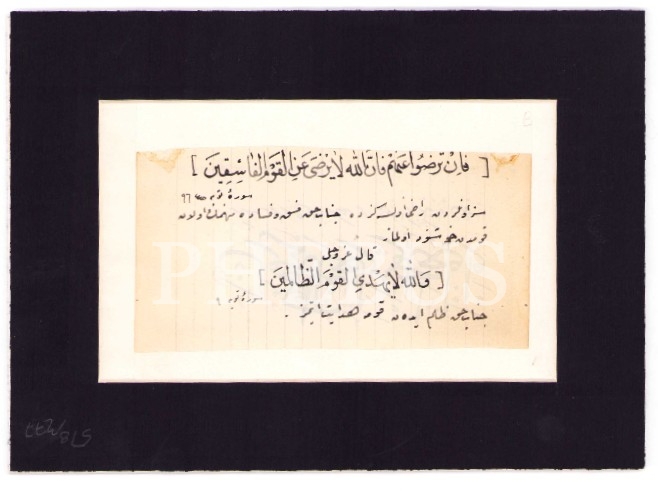 [ فَاِنْ تَرْضَوْا عَنْهُمْ فَاِنَّ اللّٰهَ لَا يَرْضٰى عَنِ الْقَوْمِ الْفَاسِقِينَ ]
سورهٔ توبه ٩٦
سز اونلردن راضى اولسه كز ده جناب حق فسق و فساده منهمك اولان
قومدن خوشنود اولماز
قال عز وجل
[ وَاللّٰهُ لَا يَهْدِي الْقَوْمَ الظَّالِمِينَ ]
سورهٔ توبه
جناب حق ظلم ايدن قومه هدايت ايتمز
PHEBUS